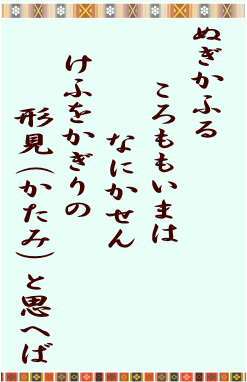 ぬぎかふる
ころももいまは
なにかせん
けふをかぎりの
形見(かたみ)と思へば